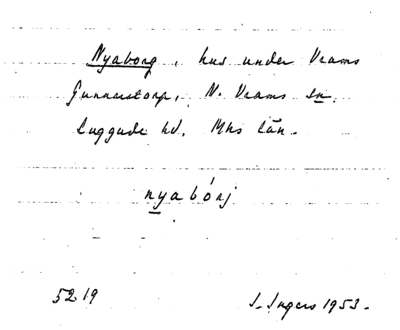 Nyaborg, hus under Vrams
Gunnarstorp, N. Vrams sn.
Luggude hd. Mhs län.
nyabórj
5219
I. Ingers 1953.